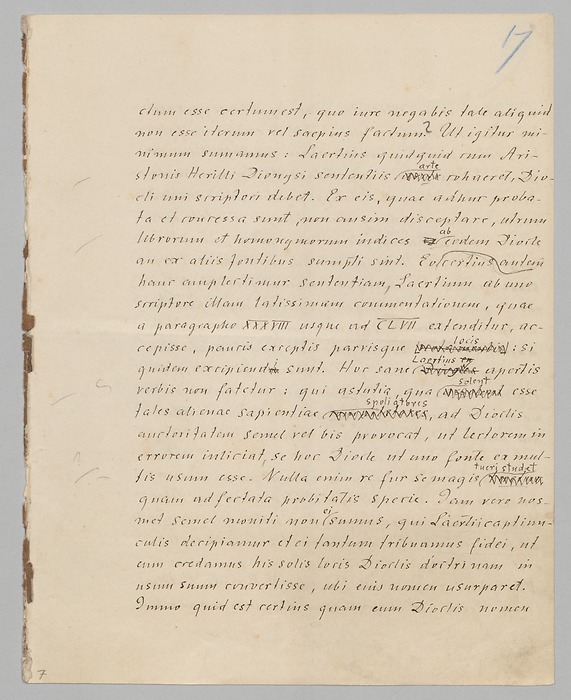 17
ctum esse certum est, quo iure negabis tale aliquid
non esse iterum vel saepius factum? Ut igitur mi-
nimum sumamus: Laertius quidquid cum Ari-
arte
stonis Herilli Dionysi sententiis cohaeret, Dio-
cli uni scriptori debet. Ex eis, quae adhuc proba-
ta et concessa sunt, non ausim disceptare, utrum
ab
librorum et homonymorum indices eodem Diocle
an ex aliis fontibus sumpti sint. Eo certius autem
hanc amplectimur sententiam, Laertium ab uno
scriptore illam latissimam commentationem, quae
a paragrapho XXXVIII usque ad CLVII extenditur, ac-
locis
cepisse, paucis exceptis parvisque : si
quidem excipiendi sunt. Hoc sane
Laertius
apertis
verbis non fatetur: qui astutia, qua
solent
esse
spoliatores
tales alienae sapientiae , ad Dioclis
auctoritatem semel vel bis provocat, ut lectorem in
errorem inliciat, se hoc Diocle ut uno fonte ex mul-
tis usum esse. Nulla enim re fur se magis
tueri studet
quam adfectata probitatis specie. Iam vero nos-
ei
met semel moniti non sumus, qui Laertii captiun-
culis decipiamur et ei tantum tribuamus fidei, ut
eum credamus his solis locis Dioclis doctrinam in
usum suum convertisse, ubi eius nomen usurparet.
Immo quid est certius quam eum Dioclis nomen
7